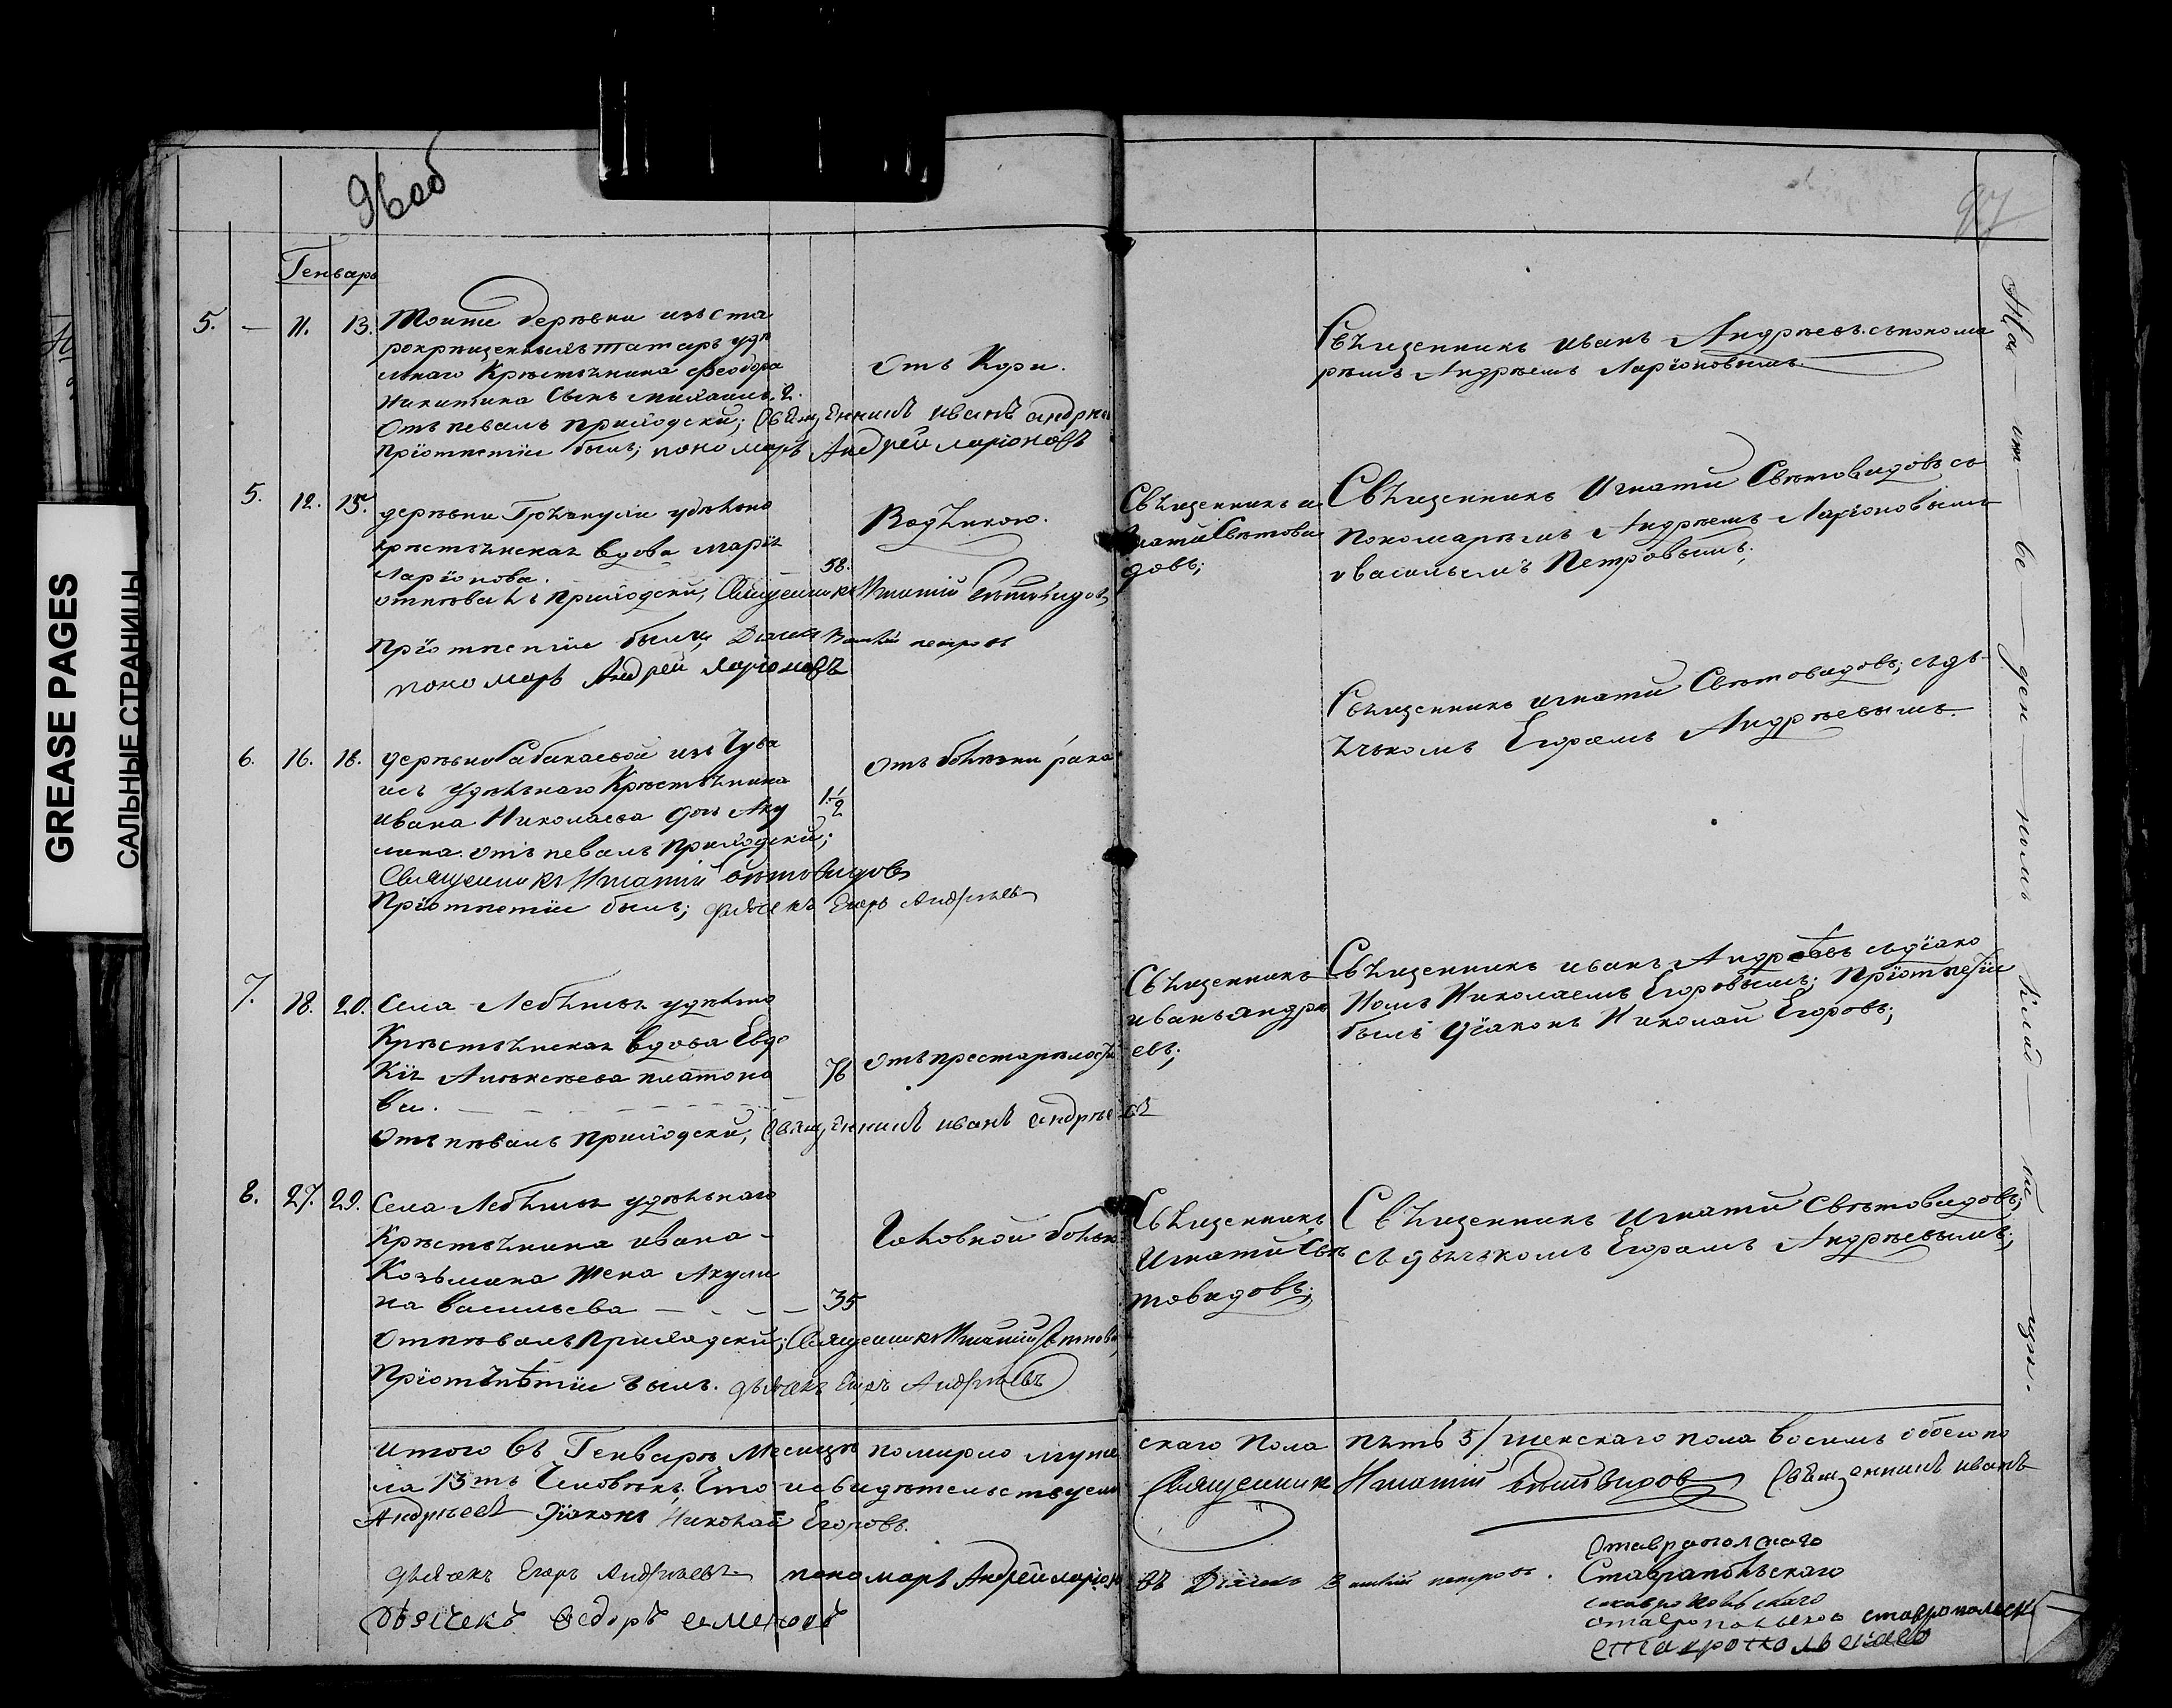 96 об
97
GREASE PAGES
САЛЬНЫЕ СТРАНИЦЫ
Генварь
5. — 11. 13. Тоиже деревни изъ ста
рокрещенныхъ татаръ удѣ
лнаго Крѣстьянина Феодора
Никитина Сынъ Михаилъ. 2.
Отъ Кори.
Отъ певалъ приходски; Священникъ иванъ андрее
Приотпетіи былъ; поно марь Андрей ларіоновъ
Священникъ иванъ Андрѣевъ. съпонома
ремъ Андрѣемъ Ларіоновымъ.
5. 12. 15. деревни удѣлно
крестьянская вдова Марія
Ларіонова. 58.
Водяною.
отпѣвалъ приходски, Священникъ Игнатій Свѣтовидовъ
Приотпетіи были, Дьячекъ Василій петровъ
поно марь Андрей ларіоновъ
Священникъ и
гнати Свѣтови
довъ;
Священникъ Игнати Свѣтовидовъ съ
пономаремъ Андрѣемъ Ларіоновымъ
и васильемъ Петровымъ;
6. 16. 18. деревни Сабакаевой изъ Чува
шъ удѣлнаго Крѣстьянина
ивана Николаева дочь Аку
лина. 1. 1/2
отъ болѣзни рака
отъ певалъ приходски;
Священникъ Игнатій Свѣтовидовъ
Приотпетіи былъ; дьячекъ Егоръ Андрѣевъ
Священникъ игнати Свѣтовидовъ; съдь-
ячкомъ Егоромъ Андрѣевымъ.
7. 18. 20. Села Лебяжья удѣлно
Крѣстьянская вдова Евдо
кія Алѣксѣева платоно
ва. 76
отъ престарѣлости
Отъ пѣвалъ приходски, Священникъ иванъ андрѣевъ
Священникъ
иванъ андрѣ
евъ;
Священникъ иванъ Андрѣевъ съдіако
номъ Николаемъ Егоровымъ; Приотпетіи
былъ діаконъ Николай Егоровъ;
8. 27. 29. Села Лебяжья удѣльнаго
Крѣстьянина ивана
Козьмина жена Акули
на Васильева 35
Головной болью
Отпѣвалъ Приходский; Священникъ Игнатій Свѣтови
Приотпѣтіи былъ. дьячекъ Егоръ Андрѣевъ
Священникъ
Игнатий Свѣ
товидовъ;
Священникъ Игнати Свѣтовидовъ;
съ дьячькомъ Егоромъ Андрѣевымъ;
итого въ Генварѣ Месяцѣ померло муже скаго Пола пять 5/ женскаго пола восимь обоего по
ла 13ть Человѣкъ, Что и свидетельствуемъ Священникъ Игнатій Свѣтовидовъ Священникъ иванъ
Андрѣевъ Діаконъ Николай Егоровъ.
дьячекъ Егоръ Андрѣевъ поно марь Андрей ларіоновъ Дьячекъ Василій петровъ.
дьячекъ Федоръ семеновъ
Ставрополскаго
Ставропольскаго
ставропольскаго
ставропольскаго ставропольск
ставропольскаго